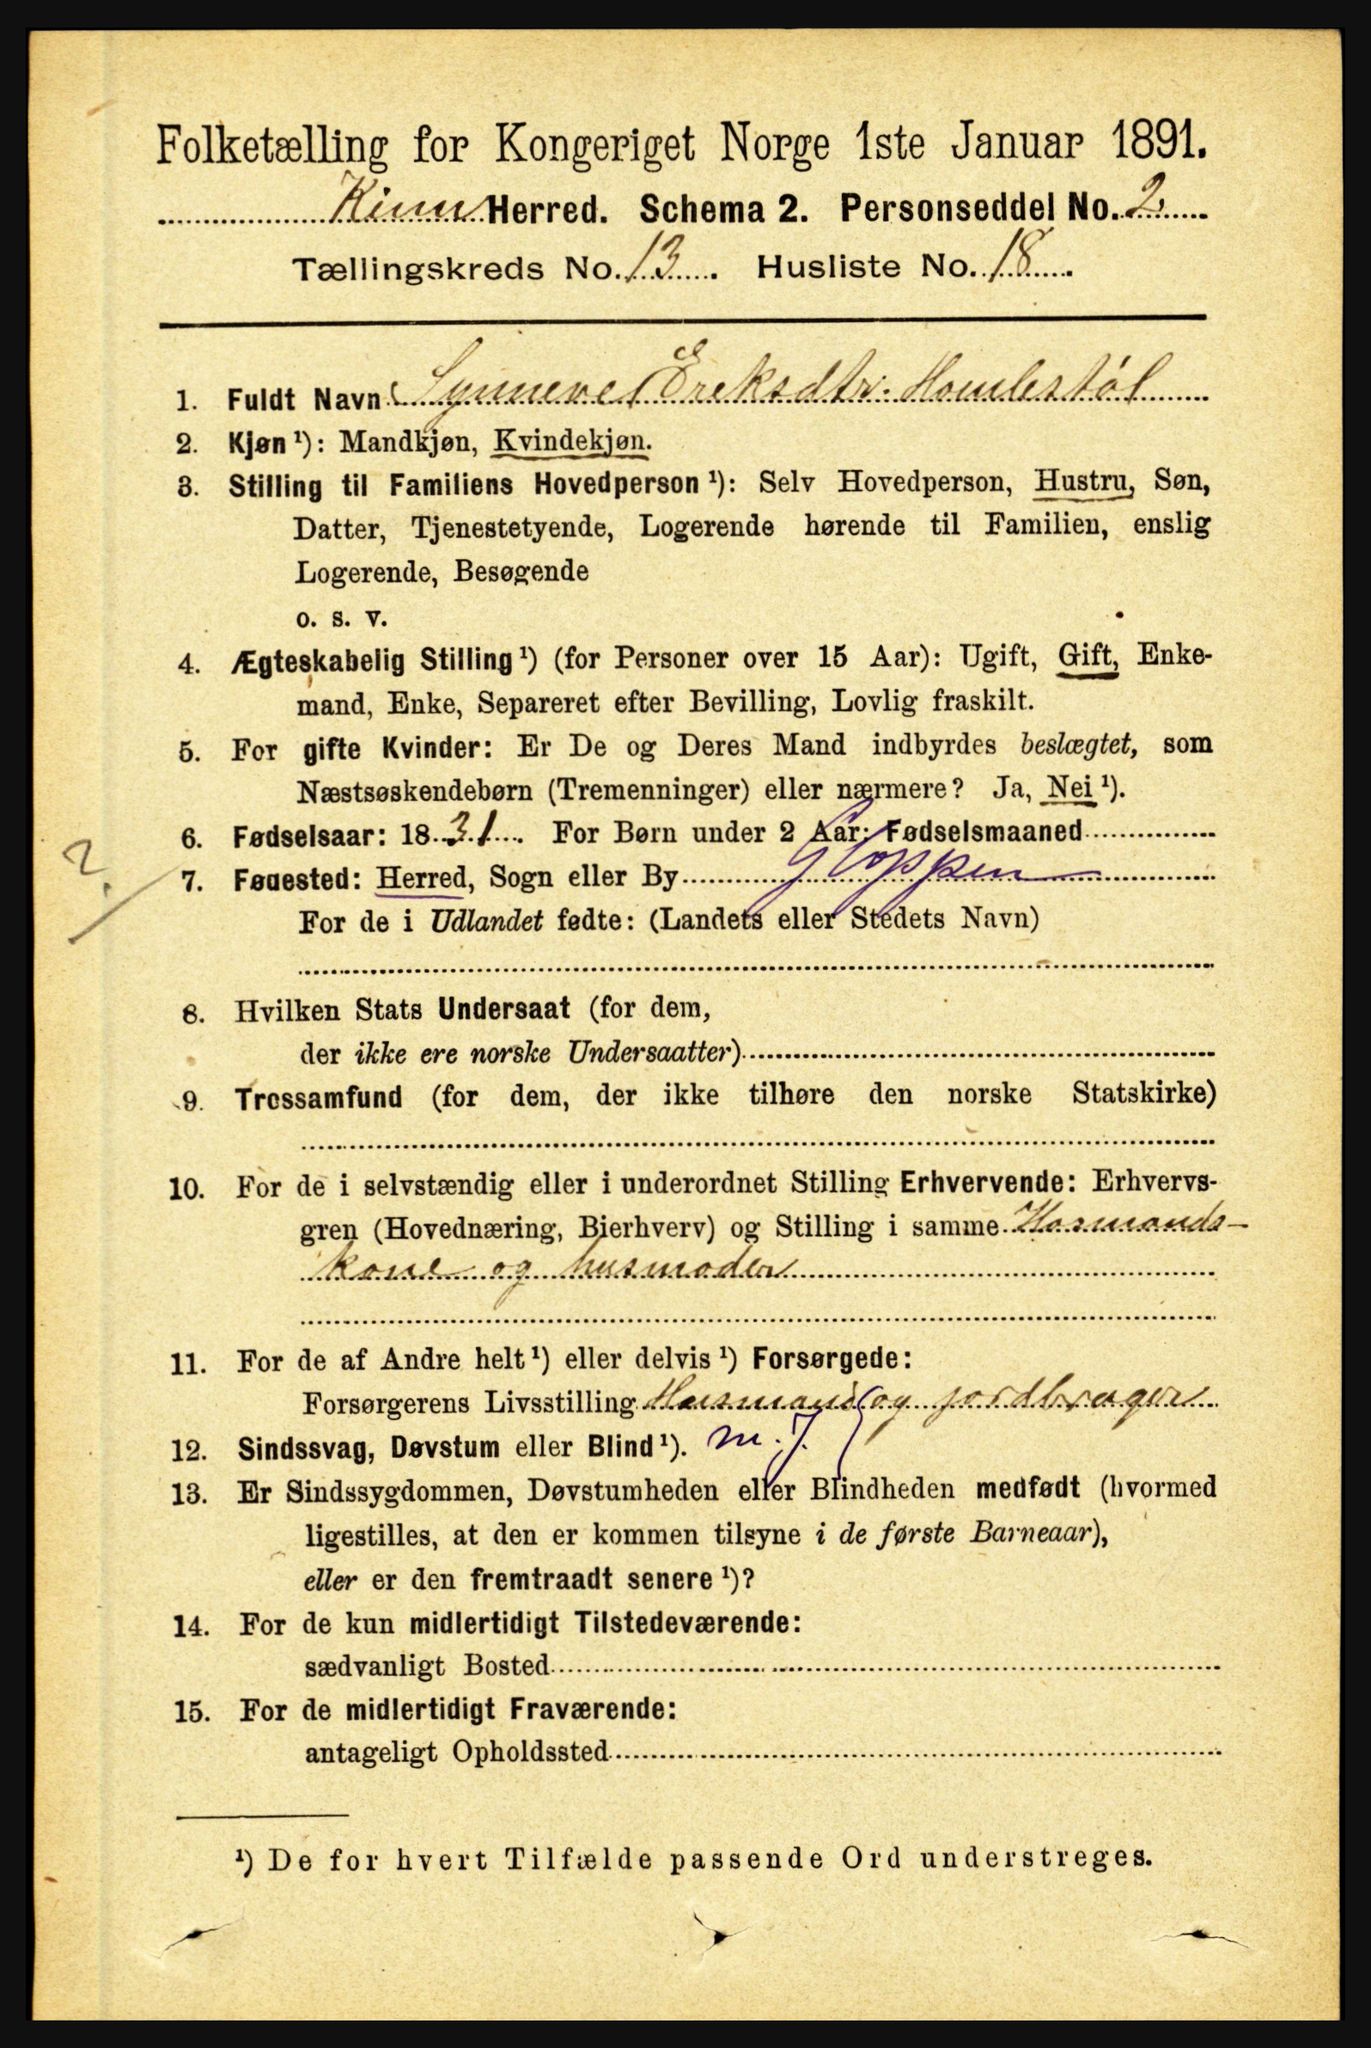 Folketælling for Kongeriget Norge 1ste Januar 1891.
Kinn Herred. Schema 2. Personseddel No. 2
Tællingskreds No. 13. Husliste No. 18.
1. Fuldt Navn Synneve Ereksdtr. Homlestøl
2. Kjøn ¹): Mandkjøn, Kvindekjøn.
3. Stilling til Familiens Hovedperson ¹): Selv Hovedperson, Hustru, Søn,
Datter, Tjenestetyende, Logerende hørende til Familien, enslig
Logerende, Besøgende
o. s. v.
4. Ægteskabelig Stilling ¹) (for Personer over 15 Aar): Ugift, Gift, Enke-
mand, Enke, Separeret efter Bevilling, Lovlig fraskilt.
5. For gifte Kvinder: Er De og Deres Mand indbyrdes beslægtet, som
Næstsøskendebørn (Tremenninger) eller nærmere? Ja, Nei ¹).
6. Fødselsaar: 1831. For Børn under 2 Aar: Fødselsmaaned
2.
7. Fødested: Herred, Sogn eller By Gloppen
For de i Udlandet fødte: (Landets eller Stedets Navn)
8. Hvilken Stats Undersaat (for dem,
der ikke ere norske Undersaatter)
9. Trossamfund (for dem, der ikke tilhøre den norske Statskirke)
10. For de i selvstændig eller i underordnet Stilling Erhvervende: Erhvervs-
gren (Hovednæring, Bierhverv) og Stilling i samme Husmands-
kone og husmoder
11. For de af Andre helt ¹) eller delvis ¹) Forsørgede:
Forsørgerens Livsstilling Husmand og jordbruger
12. Sindssvag, Døvstum eller Blind ¹). m. J.
13. Er Sindssygdommen, Døvstumheden eller Blindheden medfødt (hvormed
ligestilles, at den er kommen tilsyne i de første Barneaar),
eller er den fremtraadt senere ¹)?
14. For de kun midlertidigt Tilstedeværende:
sædvanligt Bosted
15. For de midlertidigt Fraværende:
antageligt Opholdssted
¹) De for hvert Tilfælde passende Ord understreges.